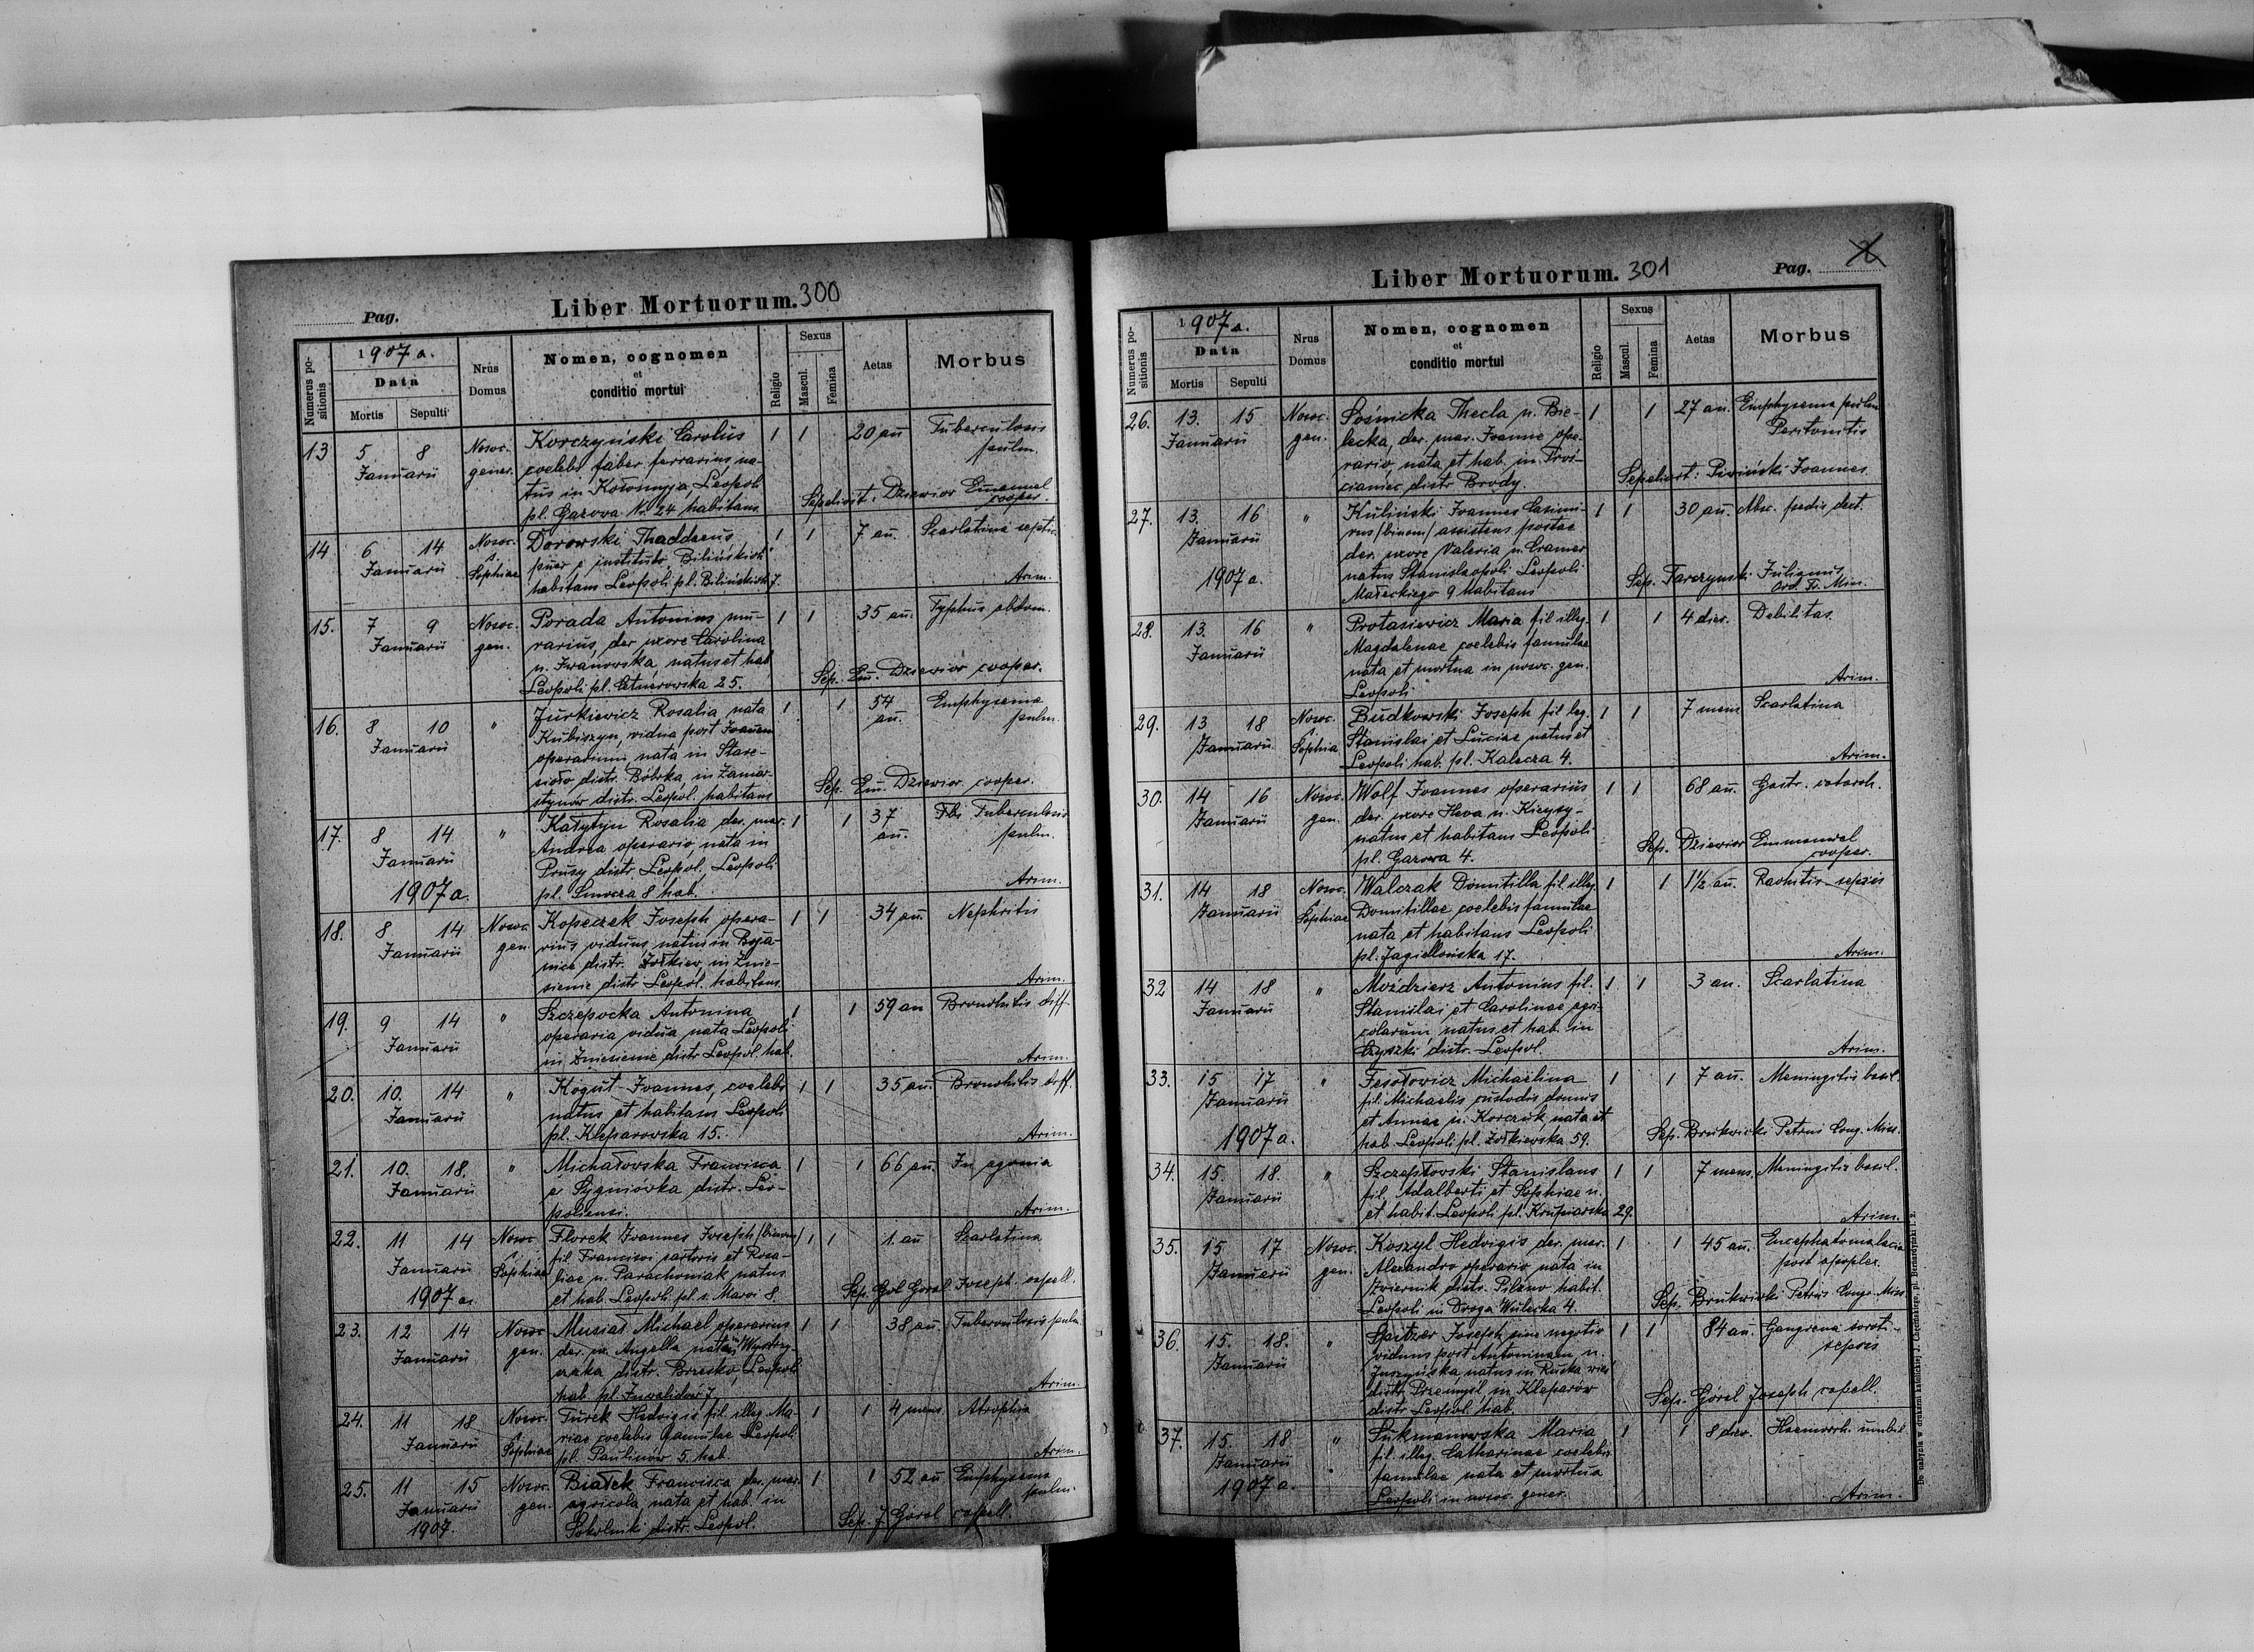 Pag.
Liber Mortuorum. 300
Numerus positionis
1907 a.
Data
Mortis
Sepulti
Nrus Domus
Nomen, cognomen
et
conditio mortui
Religio
Sexus
Mascul.
Femina
Aetas
Morbus
13 5 8 Nosoc. Korczyński Carolus 1 1 20 an̄ Tuberculosis
Januarii gener. coelebs faber ferrarius na- pulm.
tus in Kołomyja Leopoli Sepelivit: Dziewior Emanuel
pl. Gazowa Nr. 24 habitans cooper.
14 6 14 Nosoc. Dorowski Thaddaeus, 1 1 7 an̄. Scarlatina septic.
Januarii S. puer e instituti „Bilińskich"
Sophiae habitans Leopoli pl. Bilińskich 7. Arim.
15. 7 9 Nosoc. Porada Antonius mu- 1 1 35 an̄. Typhus abdom.
Januarii gen. rarius, der. uxore Carolina
n. Iwanowska, natus et hab. Sep. Em̄. Dziewior cooper.
Leopoli pl. Cetnerowska 25.
16. 8 10 " Jurkiewicz Rosalia nata 1 1 54 Emphysema
Januarii Kubiszyn, vidua post Joannem an̄. pulm.
operarium, nata in Stare-
sioło distr. Bóbrka, in Zamar- Sep. Em̄. Dziewior cooper.
stynów distr. Leopol. habitans
17. 8 14 " Kałytyn Rosalia der. mar. 1 1 37 Tbc Tuberculosis
Januarii Andrea operario, nata in an̄. pulm.
Prusy distr. Leopol. Leopoli
1907 a. pl. Smocza 8 hab. Arim.
18. 8 14 Nosoc. Kopeczek Joseph, opera- 1 1 34 an̄. Nephritis
Januarii gen. rius viduus, natus in Boja-
nice distr. Żołkiew, in Znie-
sienie distr. Leopol. habitans Arim.
19. 9 14 " Szczepocka Antonina 1 1 59 an Bronchitis diff.
Januarii operaria vidua nata Leopoli
in Zniesienie distr. Leopol. hab. Arim.
20. 10. 14 " Kogut Joannes, coelebs 1 1 35 an̄. Bronchitis diff.
Januarii natus et habitans Leopoli
pl. Kleparowska 15. Arim.
21. 10. 18. " Michałowska Francisca 1 1 66 an̄. In agonia
Januarii e Sygniówka distr. Leo-
poliensi. Arim.
22. 11 14 Nosoc. Florek Joannes Joseph /binom/ 1 1 1. an̄ Scarlatina
Januarii S. fil. Francisci sartoris et Rosa-
Sophiae liae n. Parachoniak natus
1907 a. et hab. Leopoli pl. s. Marci 8. Sep. Góral Joseph capell.
23. 12 14 Nosoc. Musiał Michael operarius 1 1 38 an̄. Tuberculosis pulm.
Januarii gen. der. ux. Angella natus in
distr. Brzesko, Leopoli
hab. pl. Inwalidów 7. Arim.
24. 11 18 Nosoc. Turek Hedvigis fil. illeg. Ma- 1 1 4 mens. Atrophia
Januarii S. riae coelebis famulae Leopol.
Sophiae pl. Paulinów 5. hab. Arim.
25. 11 15 Nosoc. Białek Francisca der. mar. 1 1 52 an̄ Emphysema
Januarii gen. agricola, nata et hab. in pulm.
1907. Sokolniki distr. Leopol. Sep. J. Góral capell.
Liber Mortuorum. 301
Pag.
Numerus positionis
1907 a.
Data
Mortis
Sepulti
Nrus Domus
Nomen, cognomen
et
conditio mortui
Religio
Sexus
Mascul.
Femina
Aetas
Morbus
26. 13. 15 Nosoc. Sośnicka Thecla n. Bie- 1 1 27 an. Emphysema pulm
Januarii gen. lecka, der. mar. Joanne ope- Peritonitis
rario, nata et hab. in Troś-
cianiec distr. Brody. Sepelivit: Piwiński Joannes
27. 13. 16 " Kuliński Joannes Casimi- 1 1 30 an̄. Absc. pedis dext.
Januarii rus /binom/ assistens postae
der. uxore Valeria n. Cramer
1907 a. natus Stanislaopoli Leopoli Sep. Tarczynski Julianus
Małeckiego 9 habitans Ord. Fr. Min.
28. 13. 16 " Protasiewicz Maria fil. illeg. 1 1 4 dier. Debilitas
Januarii Magdalenae coelebis famulae
nata et mortua in nosoc. gen.
Leopoli Arim.
29. 13 18 Nosoc. Budkowski Joseph fil. leg. 1 1 7 mens Scarlatina
Januarii S. Stanislai et Luciae natus et
Sophia Leopoli hab. pl. Kalecza 4. Arim.
30. 14 16 Nosoc. Wolf Joannes operarius 1 1 68 an̄. Gastr. catarrh.
Januarii gen. der. uxore Heva n.
natus et habitans Leopoli Sep. Dziewior Emmanuel
pl. Gazowa 4. cooper.
31. 14 18 Nosoc. Walczak Domitilla fil. illeg. 1 1 1½ an̄. Rachitis sepsis
Januarii S. Domitillae coelebis famulae
Sophiae nata et habitans Leopoli
pl. Jagiellońska 17. Arim.
32 14 18 " Moździerz Antonius fil. 1 1 3 an. Scarlatina
Januarii Stanislai et Carolinae agri-
colarum, natus et hab. in
Czyszki distr. Leopol. Arim.
33. 15 17 " Fesołowicz Michaëlina 1 1 7 an̄. Meningitis basil.
Januarii fil. Michaelis custodis domus
et Annae n. Korczuk nata et
1907 a. hab. Leopoli pl. Żołkiewska 59. Sep. Brukwicki Petrus Cong. Miss.
34. 15. 18. " Szczepłowski Stanislaus 1 1 7 mens. Meningitis basil.
Januarii fil. Adalberti et Sophiae n.
et habit. Leopoli pl. Krupiarska 29. Arim.
35. 15 17 Nosoc. Koszyl Hedvigis der. mar. 1 1 45 an̄. Encephalomalacia
Januarii gen. Alexandro operario, nata in post apoplex.
Zwiernik distr. Pilzno habit.
Leopoli in Droga Wulecka 4. Sep. Brukwicki Petrus Congr. Miss
36. 15. 18. " Spitzer Joseph sine negotio 1 1 84 an̄. Gangrena scroti-
Januarii viduus post Antoninam n. sepsis
natus in Ruska wieś
distr. Przemyśl in Kleparów Sep. Góral Joseph capell.
distr. Leopol. hab.
37. 15. 18 " Sukmanowska Maria 1 1 8 dier. Haemorrh. umbil.
Januarii fil. illeg. Catharinae coelebis
1907 a. famulae nata et mortua
Leopoli in nosoc. gener. Arim.
Do nabycia w drukarni katolickiej J. Chęcińskiego, pl. Bernardyński l. 2.